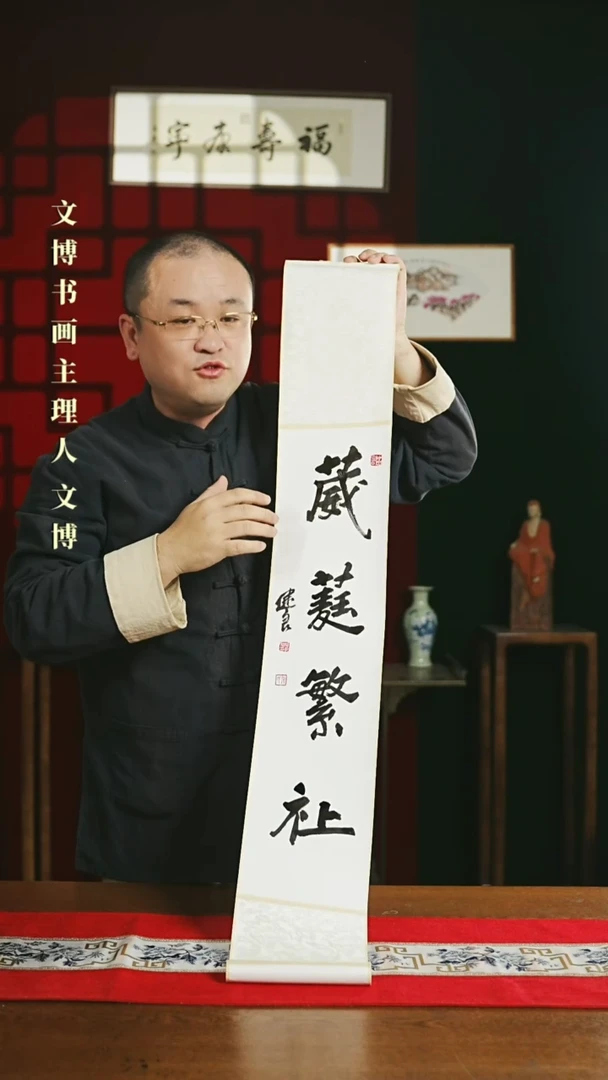 福寿康宁
文博书画主理人 文博
葳蕤繁祉